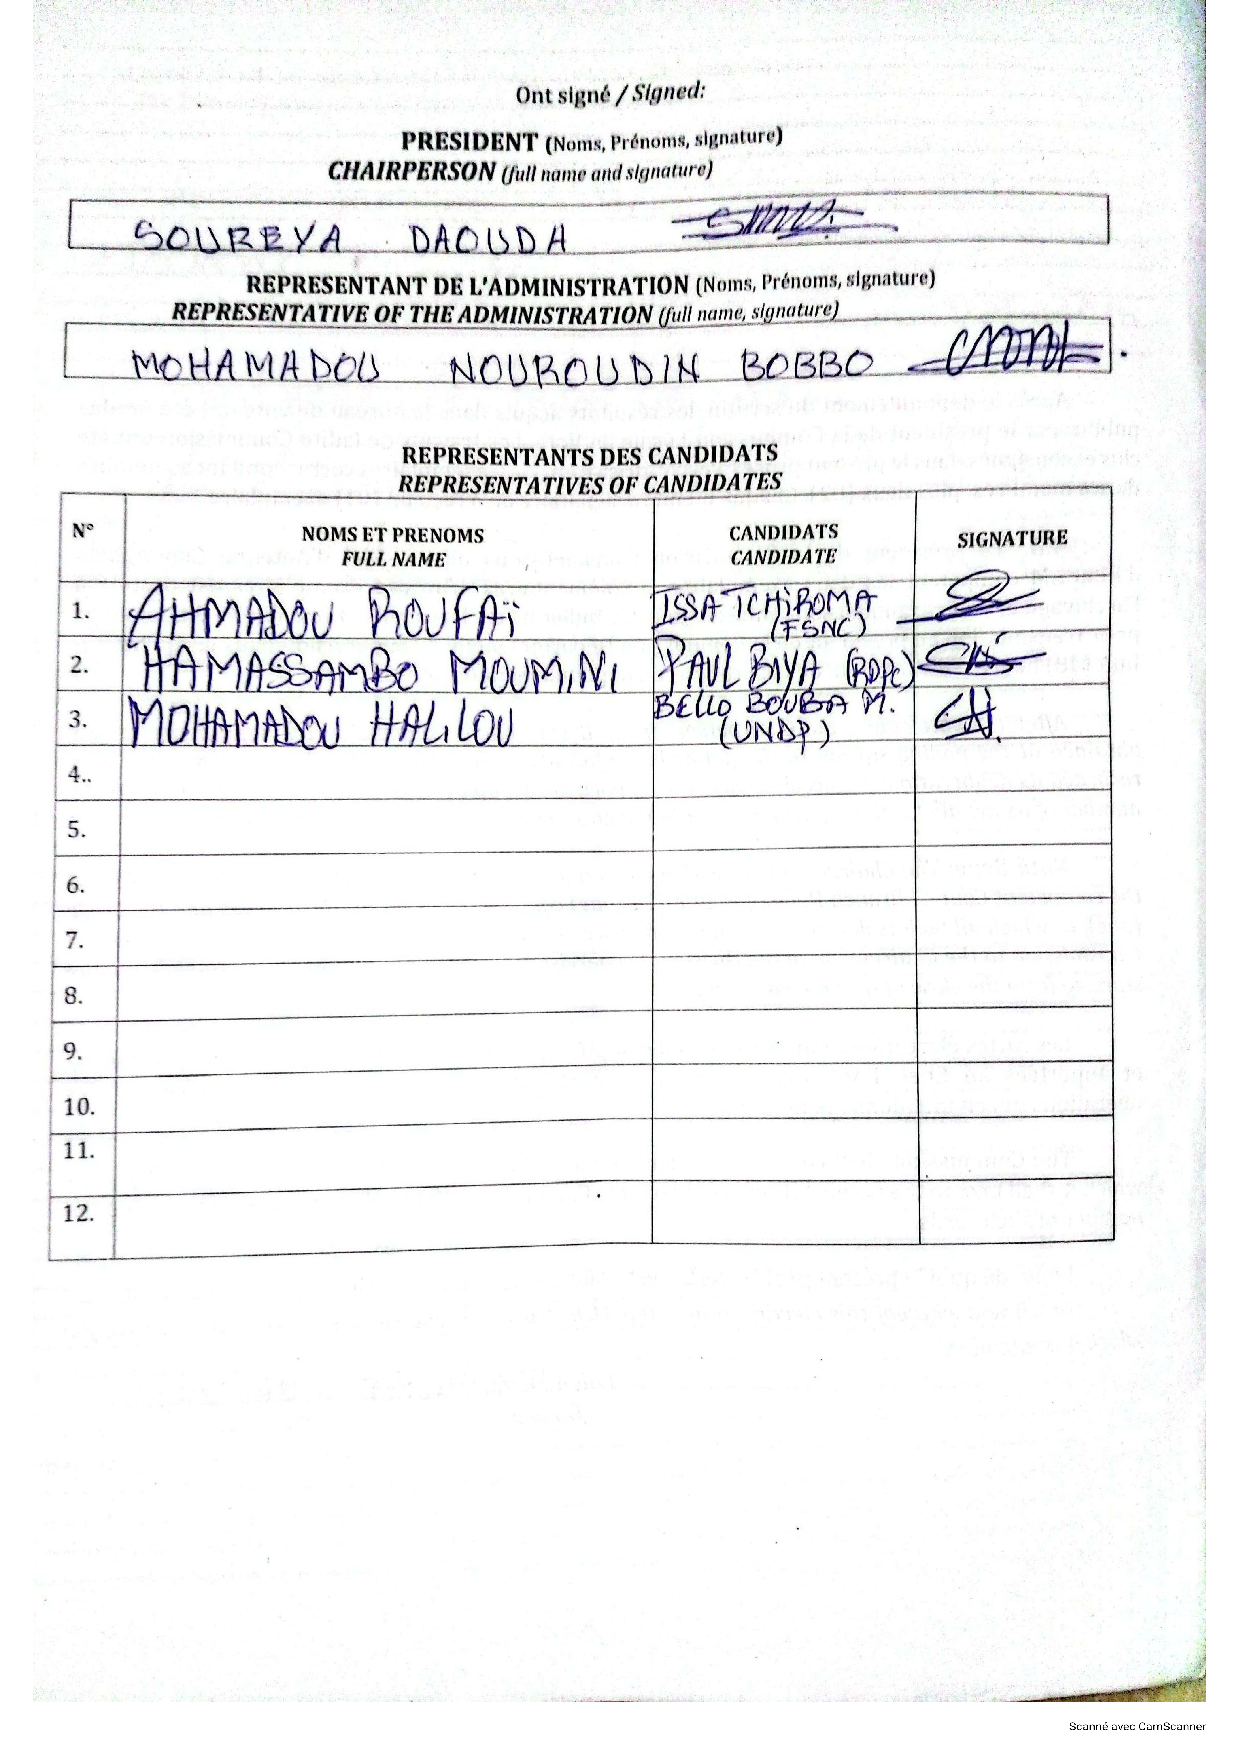 Ont signé / Signed:
PRESIDENT (Noms, Prénoms, signature)
CHAIRPERSON (full name and signature)
SOUREYA DAOUDA
REPRESENTANT DE L'ADMINISTRATION (Noms, Prénoms, signature)
REPRESENTATIVE OF THE ADMINISTRATION (full name, signature)
MOHAMADOU NOUROUDIN BOBBO
REPRESENTANTS DES CANDIDATS
REPRESENTATIVES OF CANDIDATES
N° NOMS ET PRENOMS CANDIDATS SIGNATURE
FULL NAME CANDIDATE
1. AHMADOU ROUFAÏ ISSA TCHIROMA
(FSNC)
2. HAMASSAMBO MOUMINI PAUL BIYA (RDPC)
3. MOHAMADOU HALILOU BELLO BOUBA M.
(UNDP)
4..
5.
6.
7.
8.
9.
10.
11.
12.
Scanné avec CamScanner